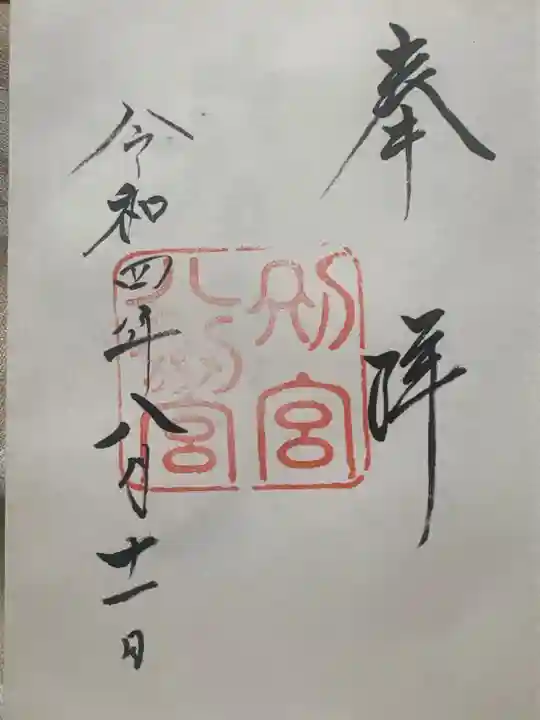 奉拝
別宮
八幡宮
令和四年八月十一日